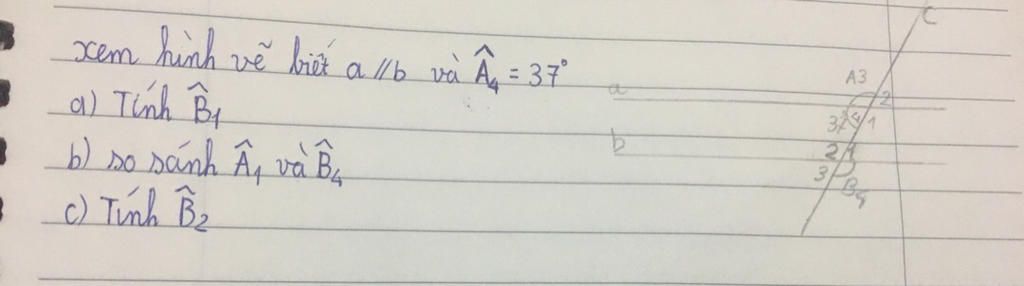 xem hình vẽ biết a//b và Â₄ = 37°
a) Tính B̂₁
b) so sánh Â₁ và B̂₄
c) Tính B̂₂
c
A3
2
a
37°
4
1
b
2
1
3
B4